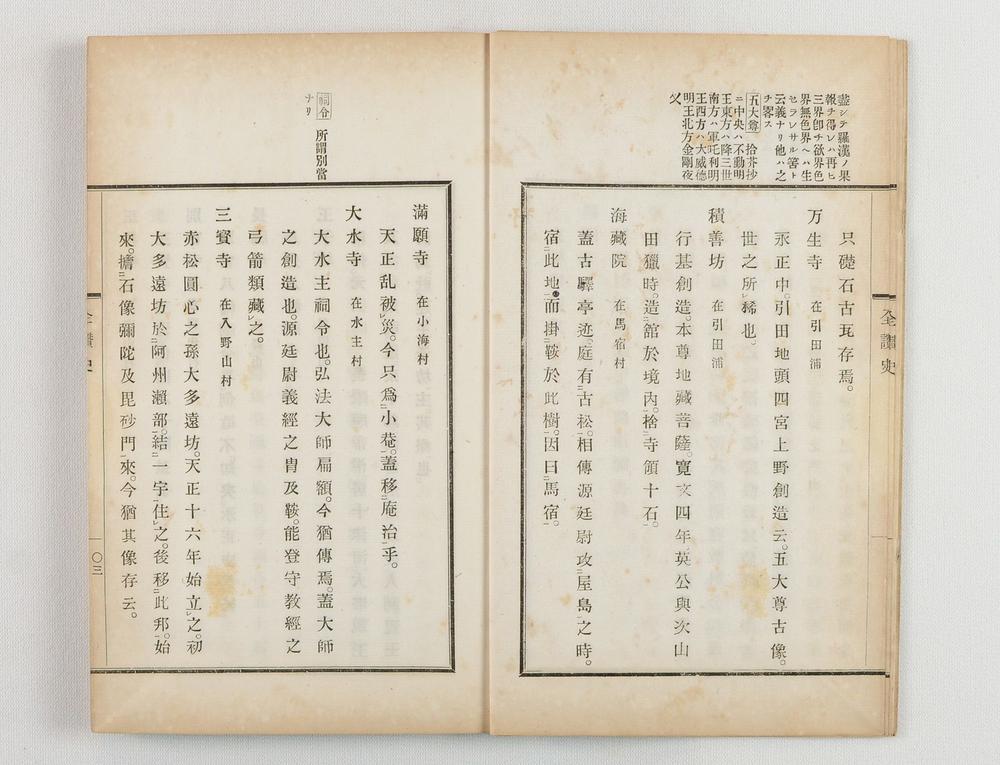 盡シテ羅漢ノ果
報チ得レハ再ヒ
三界卽チ欲界色
界無色界ヘハ生
セラレサル筈ト
云義ナリ他ハ之
チ畧ス
五大尊 拾芥抄
ニ中央ハ不動明
王東方ハ降三世
南方ハ軍吒利明
王西方ハ大威德
明王北方金剛夜
叉
只礎石古瓦存焉。
万生寺 在引田浦
永正中。引田地頭四宮上野創造云。五大尊古像。
世之所レ稀也。
積善坊 在引田浦
行基創造。本尊地藏菩薩。寬文四年。英公與次山
田獵時。造二館於境內一。捨二寺領十石一。
海藏院 在馬宿村
蓋古驛亭迹。庭有二古松一。相傳源廷尉攻二屋島一之時。
宿二此地一。而掛二鞍於此樹一。因曰二馬宿一。
全讃史
祠令 所謂別當
ナリ
滿願寺 在小海村
天正乱被レ災。今只爲二小菴一。蓋移二庵治一乎。
大水寺 在水主村
大水主祠令也。弘法大師扁額。今猶傳焉。蓋大師
之創造也。源廷尉義經之冑及鞍。能登守教經之
弓箭類藏レ之。
三寶寺 在入野山村
赤松圓心之孫大多遠坊。天正十六年始立レ之。初
大多遠坊於二阿州瀨部一。結二一宇一住レ之。後移二此邦一。始
來。擔二石像彌陀及毘砂門一來。今猶其像存云。
全讃史
一〇三